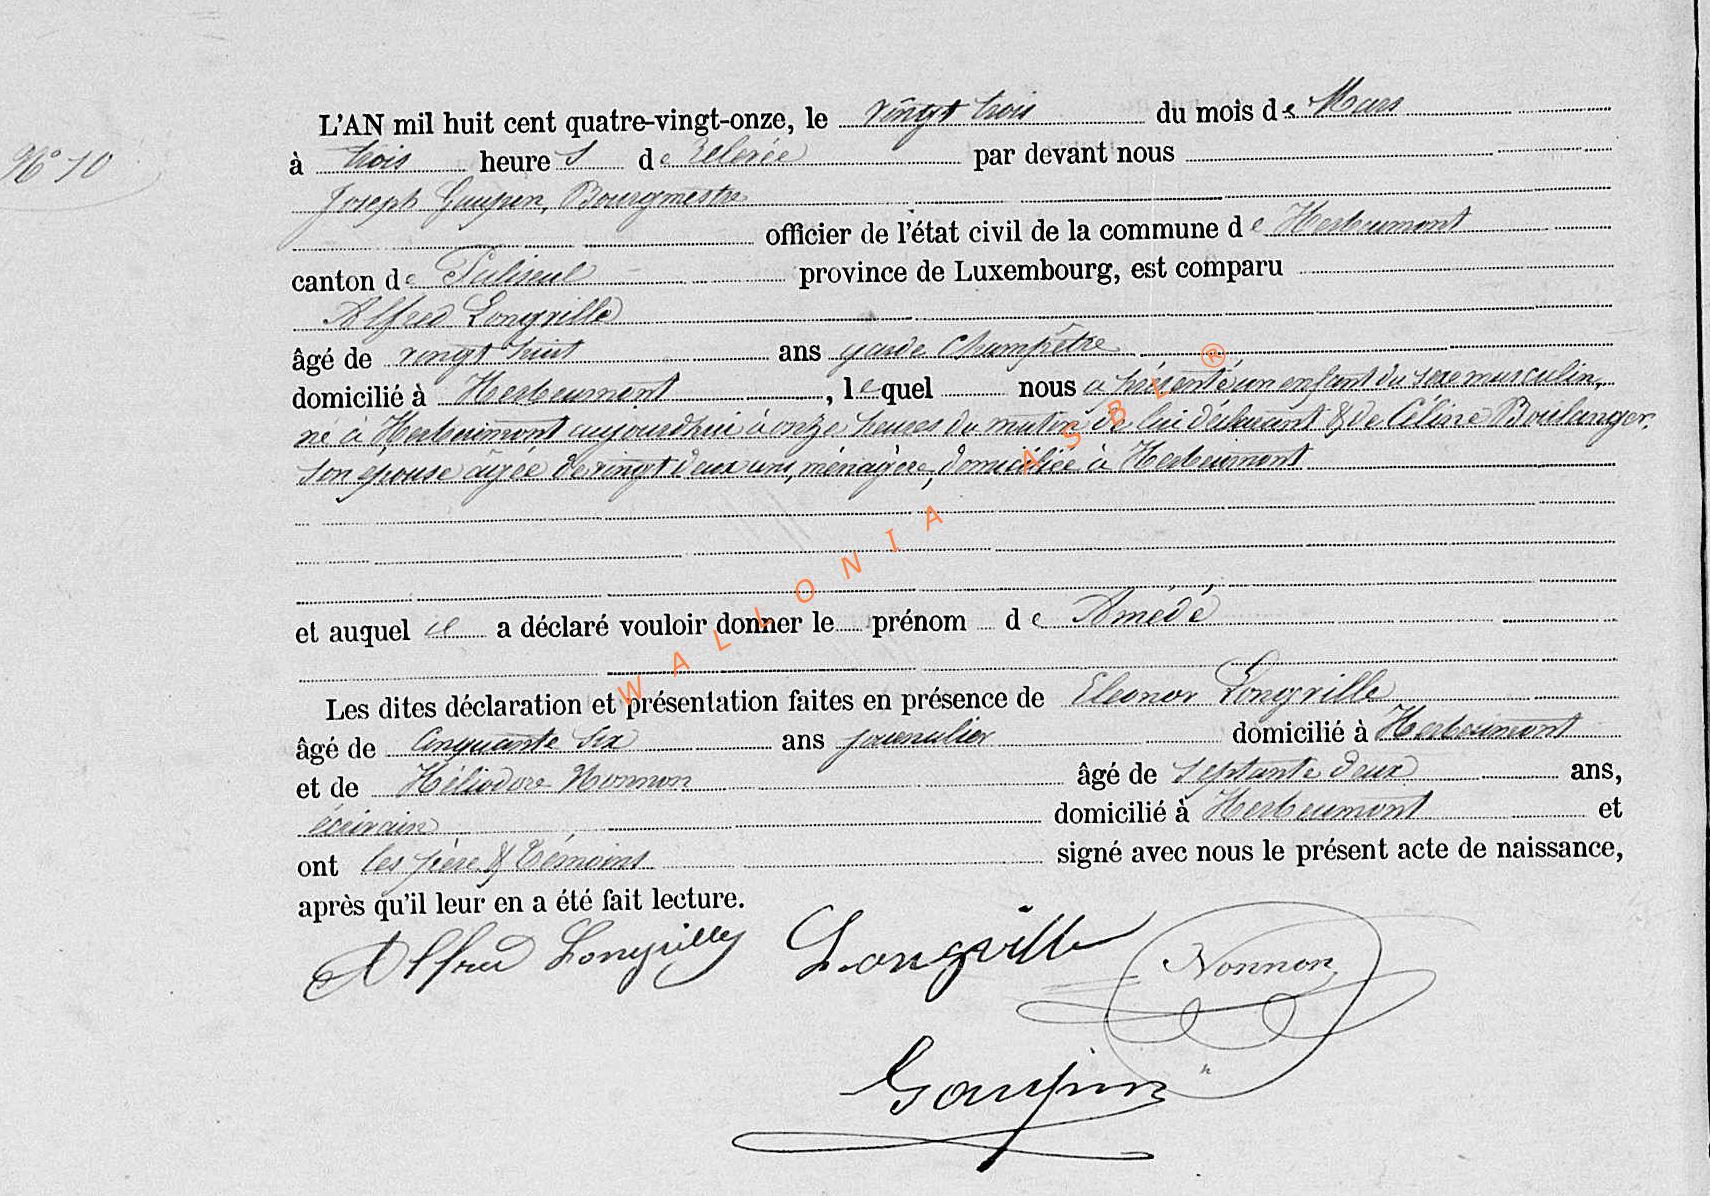 L'AN mil huit cent quatre-vingt-onze, le vingt trois du mois de Mars
N° 10
à trois heures de relevée par devant nous
Joseph Gaupin, Bourgmestre
officier de l'état civil de la commune de Herbeumont
canton de Paliseul province de Luxembourg, est comparu
Alfred Longville
âgé de vingt huit ans garde champêtre
domicilié à Herbeumont, lequel nous a présenté un enfant du sexe masculin,
né à Herbeumont aujourdhui à onze heures du matin de lui déclarant & de Céline Boulanger,
son épouse âgée de vingt deux ans, ménagère, domiciliée à Herbeumont
et auquel il a déclaré vouloir donner le prénom de Amédé
Les dites déclaration et présentation faites en présence de Eleonor Longville
âgé de Cinquante Six ans journalier domicilié à Herbeumont
et de Héliodore Nonnon âgé de septante deux ans,
écrivain domicilié à Herbeumont et
ont les père & témoins signé avec nous le présent acte de naissance,
après qu'il leur en a été fait lecture.
Alfred Longville Longville Nonnon
Gaupin
WALLONIA ASBL ®